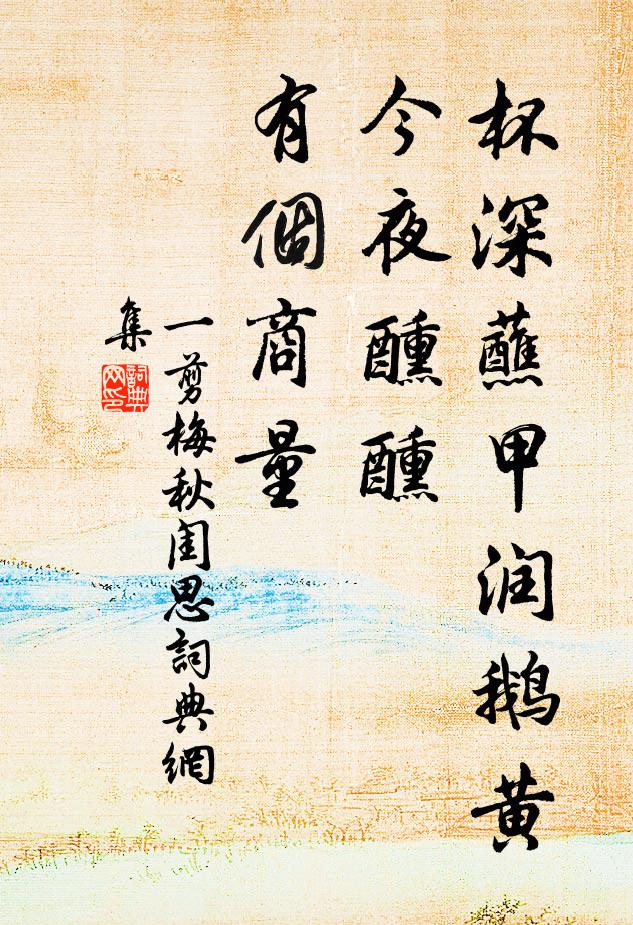 杯深蘸甲润鹅黄
今夜醺醺
有個商量
一剪梅秋闺思詞典網
集
詞典
网印